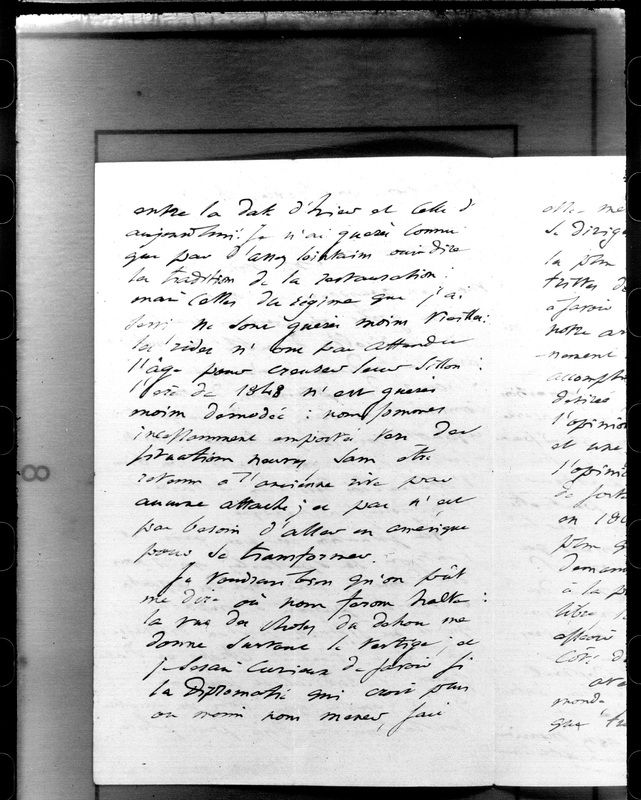 entre la date d'hier et celle d'
aujourd'hui. Je n'ai guère connu
que par d'assez lointains ouï-dire
la tradition de la restauration :
mais celles du régime que j'ai
servi ne sont guères moins vieilles :
les rides n'ont pas attendu
l'âge pour creuser leur sillon :
l'ère de 1848 n'est guères
moins démodée : nous sommes
incessamment emportés vers des
situations neuves, sans être
retenus à l'ancienne rive par
aucune attache ; et pas n'est
pas besoin d'aller en amérique
pour se transformer.
Je voudrais bien qu'on pût
me dire où nous ferons halte :
la vue des choses du dehors me
donne surtout le vertige, et
je serais curieux de savoir si
la Diplomatie qui croit plus
ou moins nous mener, sait
elle me
se dirige
la plus
à savoir
notre
nement
accompli
désirée
l'opinion
et une
l'opinion
de
en 18
plus
à la p
libre
côté d
monde
que
8